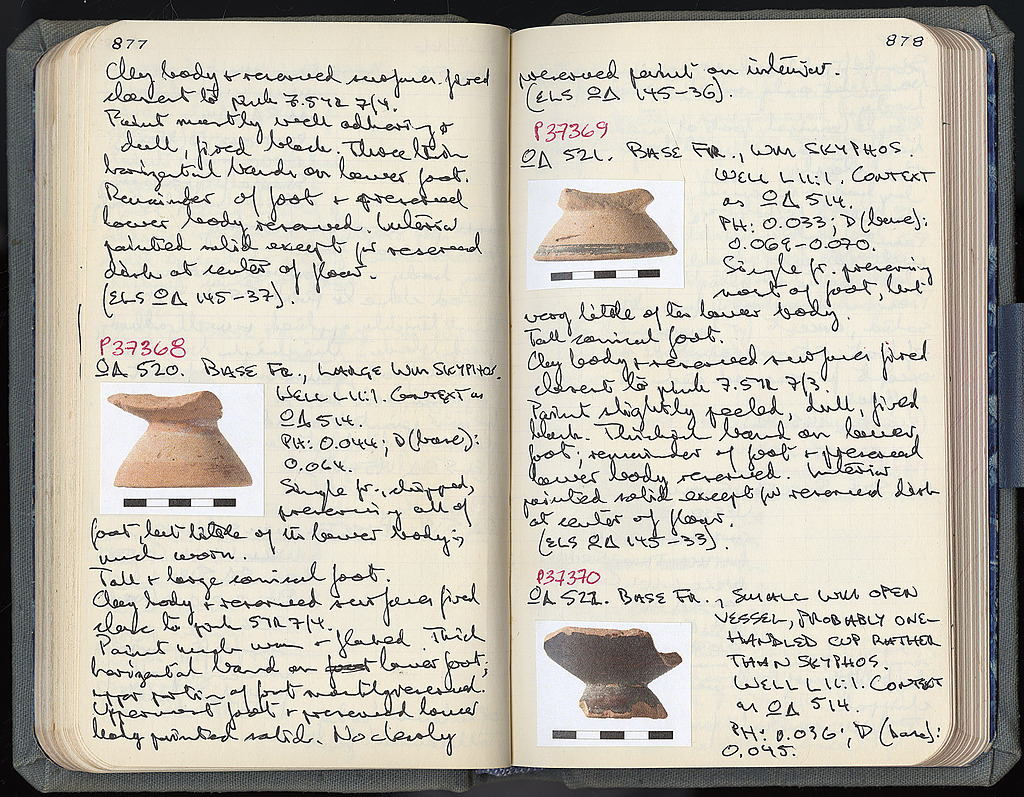 877
Clay body + reserved surfaces fired
closest to pink 7.5YR 7/4.
Paint mostly well adhering +
dull, fired black. Three thin
horizontal bands on lower foot.
Remainder of foot + preserved
lower body reserved. Interior
painted solid except for reserved
disk at center of floor.
(ELS ΩΔ 145-37).
P37368
ΩΔ 520. BASE FR., LARGE WM SKYPHOS.
WELL L 11:1. CONTEXT as
ΩΔ 514.
PH: 0.044; D (base):
0.064.
Single fr., chipped,
preserving all of
foot, but little of the lower body;
much worn.
Tall + large conical foot.
Clay body + reserved surfaces fired
close to pink 5YR 7/4.
Paint much worn + flaked. Thick
horizontal band on foot lower foot;
upper portion of foot mostly reserved.
Uppermost foot + preserved lower
body painted solid. No clearly
878
preserved paint on interior.
(ELS ΩΔ 145-36).
P37369
ΩΔ 521. BASE FR., WM SKYPHOS.
WELL L 11:1. CONTEXT
as ΩΔ 514.
PH: 0.033; D (base):
0.069-0.070.
Single fr. preserving
most of foot, but
very little of the lower body.
Tall conical foot.
Clay body + reserved surfaces fired
closest to pink 7.5YR 7/3.
Paint slightly peeled, dull, fired
black. Thickish band on lower
foot; remainder of foot + preserved
lower body reserved. Interior
painted solid except for reserved disk
at center of floor.
(ELS ΩΔ 145-33).
P37370
ΩΔ 522. BASE FR., SMALL WM OPEN
VESSEL, PROBABLY ONE-
HANDLED CUP RATHER
THAN SKYPHOS.
WELL L 11:1. CONTEXT
as ΩΔ 514.
PH: 0.036; D (base):
0.045.